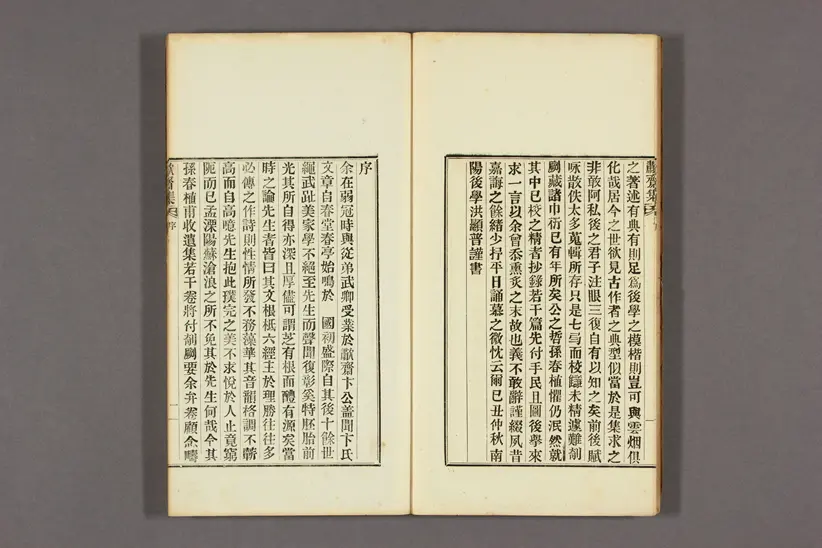 之著述有典有則足爲後學之模楷則豈可與雲烟俱
化哉居今之世欲見古作者之典型似當於是集求之
非敢阿私後之君子注眼三復自有以知之矣前後賦
咏散佚太多蒐輯所存只是七弓而校讎未精遽難剞
劂藏諸巾衍已有年所矣公之哲孫春植懼仍泯然就
其中已校之精者抄錄若干篇先付手民且圖後擧來
求一言以余曾忝熏炙之末故也義不敢辭謹綴夙昔
嘉誨之餘緖少抒平日誦慕之微忱云爾己丑仲秋南
陽後學洪顯普謹書
序
余在弱冠時與從弟武卿受業於歗齋卞公盖聞卞氏
文章自春堂春亭始鳴於 國初盛際自其後十餘世
繩武趾美家學不絕至先生而聲聞復彰奚特胚胎前
光其所自得亦深且厚儘可謂芝有根而醴有源矣當
時之論先生者皆曰其文根柢六經主於理勝往往多
必傳之作詩則性情所發不務藻華其音韻格調不蘄
高而自高噫先生抱此璞完之美不求悅於人止竟窮
阨而已孟溧陽蘇滄浪之所不免其於先生何哉今其
孫春植甫收遺集若干卷將付剞劂要余弁卷顧余疇
歗齋集 序 一